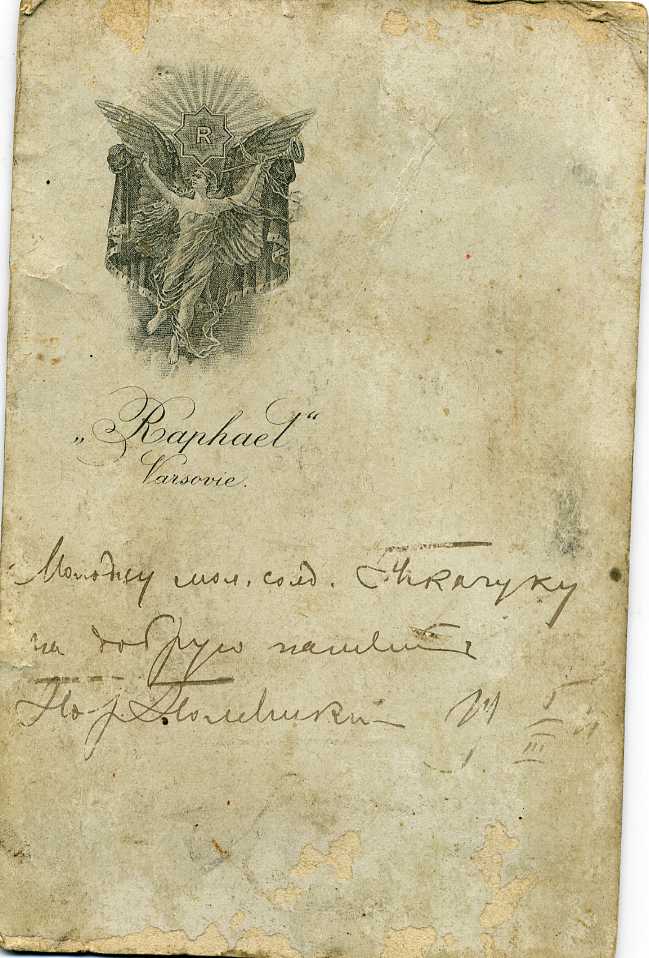 R
„Raphael“
Varsovie.
Молодцу мол. солд. Ткачуку
на добрую память
III